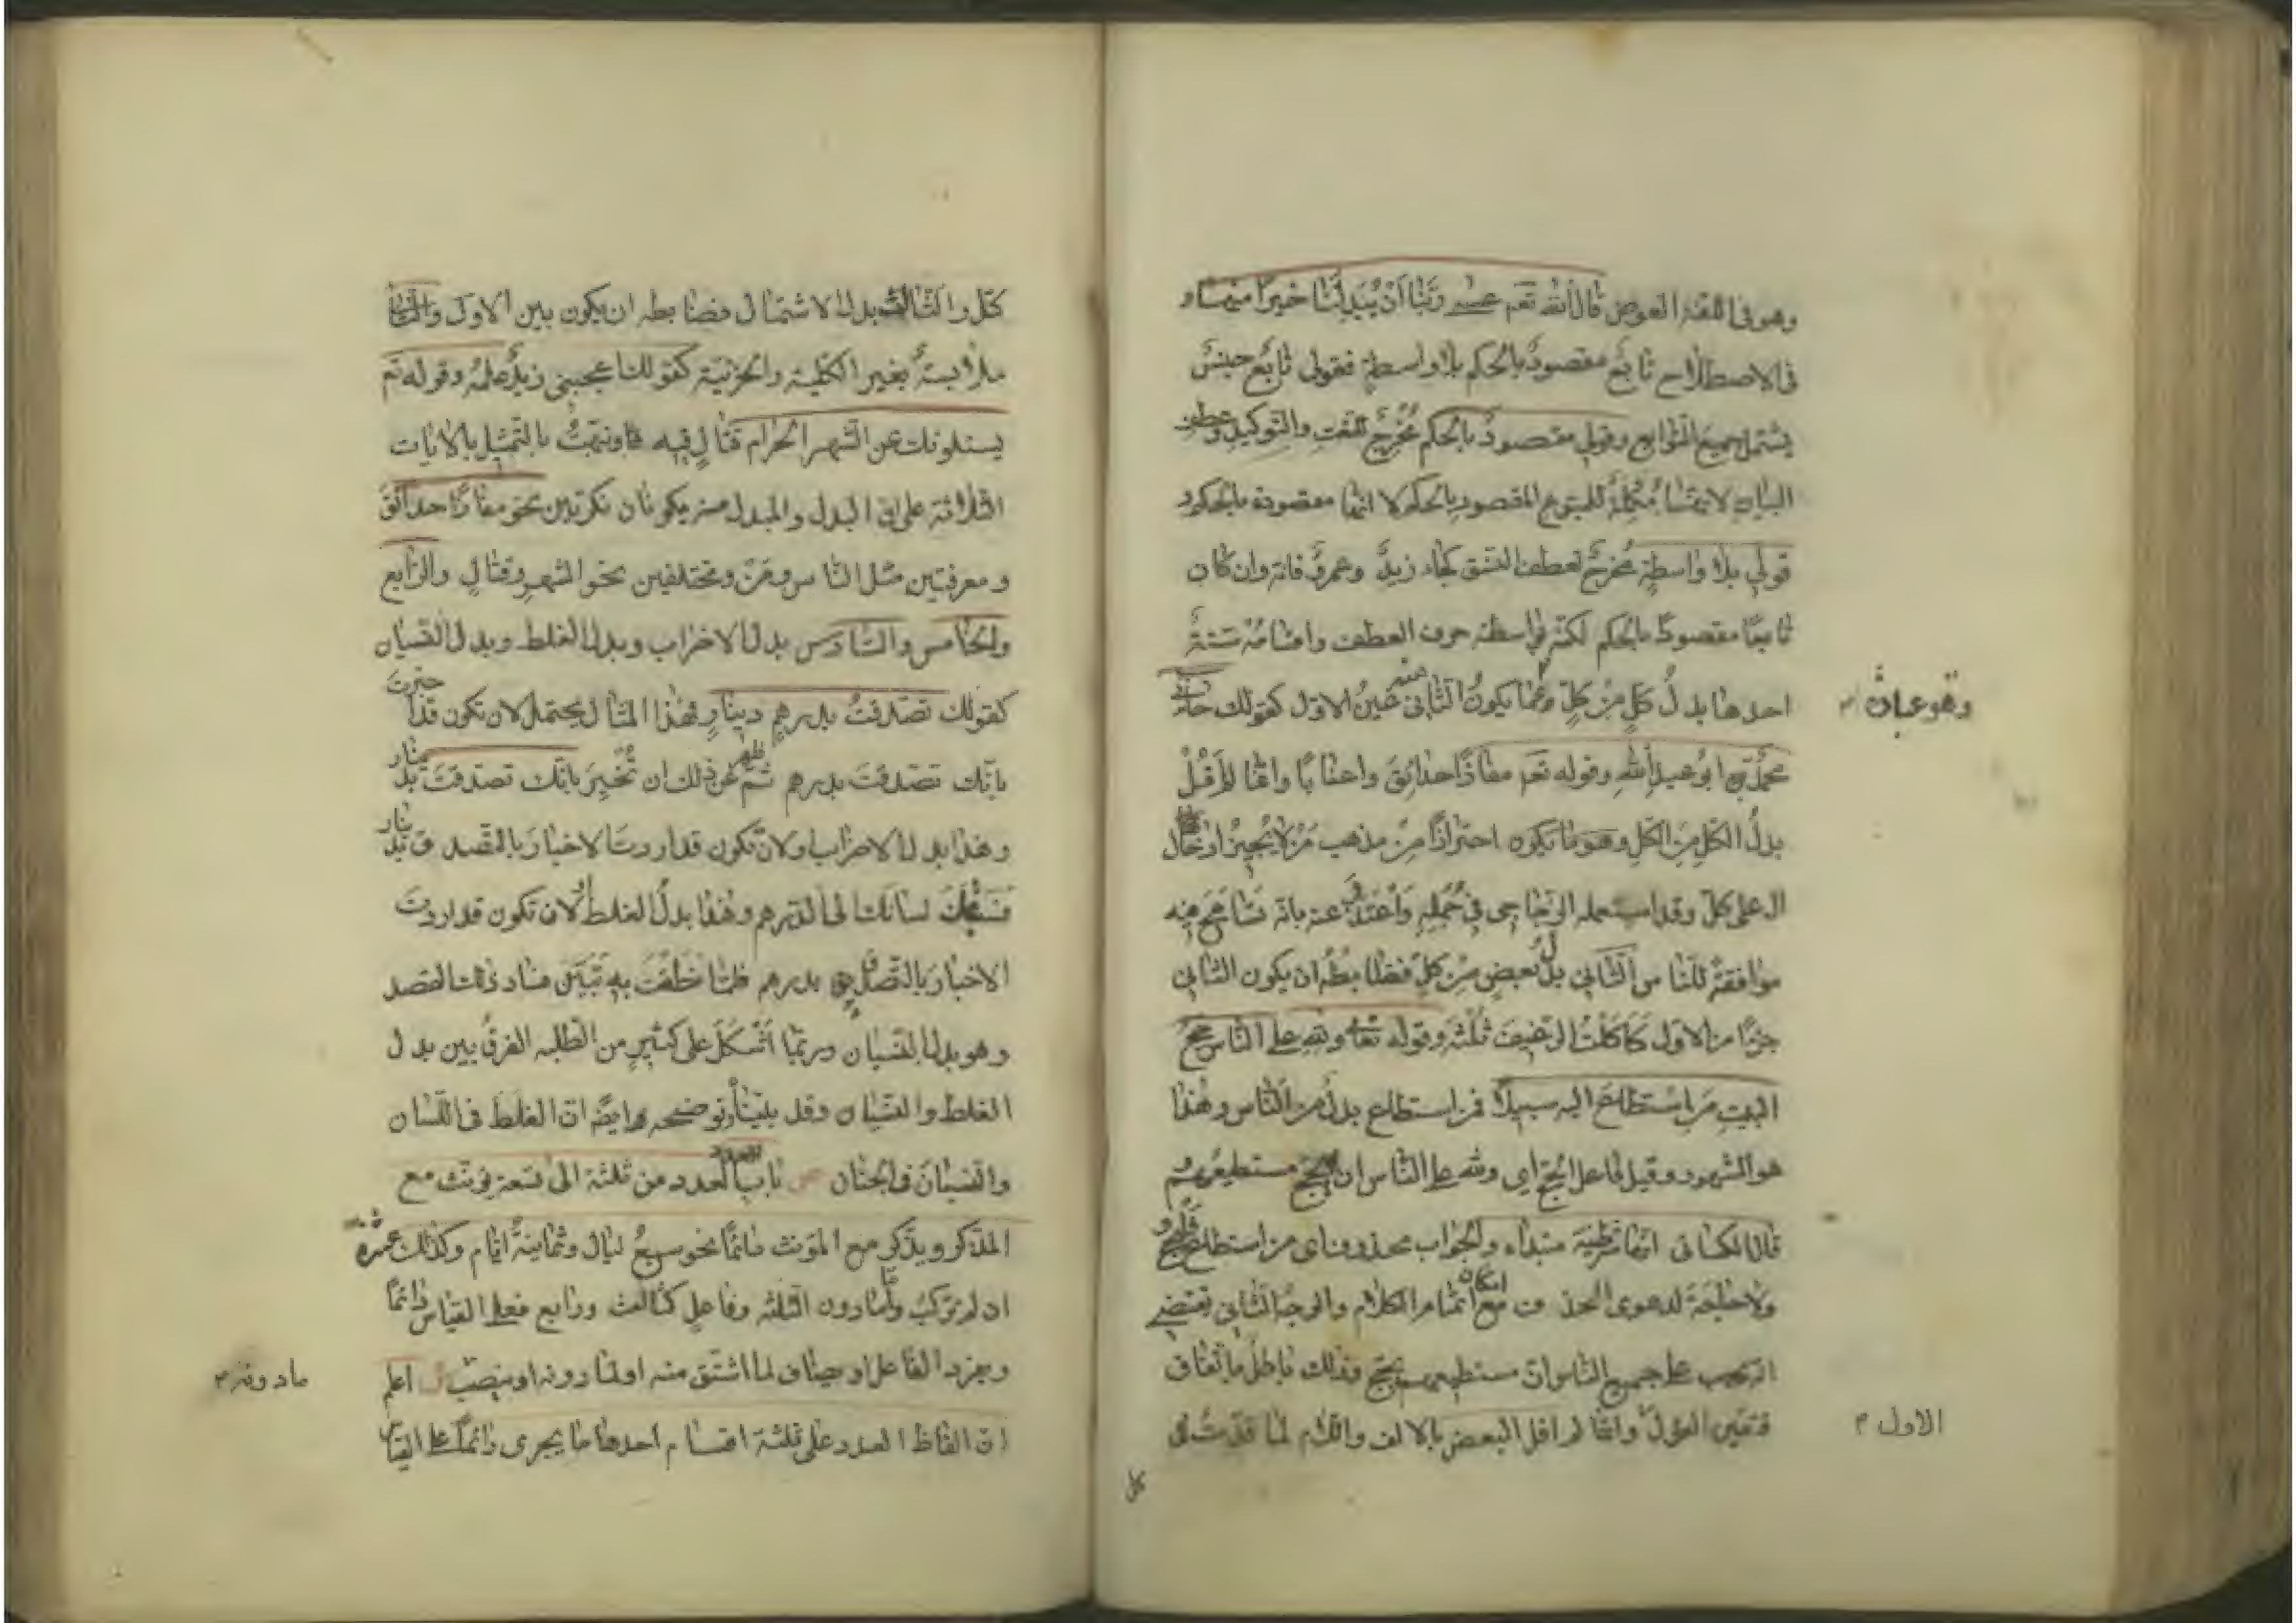 وهو في اللغة العوض قال الله تعم عسى ربنا ان يبدلنا خيرا منها و
في الاصطلاح تابع مقصود بالحكم بلا واسطة فقولي تابع جنس
يشتمل جميع التوابع وقولي مقصود بالحكم مخرج للنعت والتوكيد وعطف
البيان لانها مكملة للمتبوع المقصود بالحكم لا انها مقصودة بالحكم و
قولي بلا واسطة مخرج لعطف النسق كجاء زيد وعمرو فانه وان كان
تابعا مقصودا بالحكم لكنه بواسطة حرف العطف واقسامه ستة
احدها بدل كل من كل وهو عبارة عما يكون الثاني فيه عين الاول كقولك جاءني
محمد ابو عبد الله وقوله تعم مفازا حدائق واعنابا وانما لم اقل
بدل الكل من الكل احترازا من مذهب من لا يجيز ادخال
ال على كل وقد استعمله الزجاجي في جمله واعتذر عنه بانه تسامح فيه
موافقة للناس الثاني بدل بعض من كل فضابطه ان يكون الثاني
جزءا من الاول كاكلت الرغيف ثلثه وقوله تعا ولله على الناس حج
البيت من استطاع اليه سبيلا فمن استطاع بدل من الناس وهذا
هو المشهور وقيل فاعل الحج اي ولله على الناس ان يحج مستطيعهم
قال الكسائي انها شرطية مبتداء والجواب محذوف اي من استطاع فليحج
ولا حاجة لدعوى الحذف مع امكان اتمام الكلام والوجه الثاني يقتضي
انه يجب على جميع الناس ان مستطيعهم يحج وذلك باطل باتفاق
فتعين الاول وانما لم اقل البعض بالالف واللام لما قدمت في
وهو عبارة
الاول
كل
كل والثالث بدل الاشتمال فضابطه ان يكون بين الاول والثاني
ملابسة بغير الكلية والجزئية كقولك اعجبني زيد علمه وقوله تم
يسئلونك عن الشهر الحرام قتال فيه ونبهت بالتمثيل بالايات
الثلاثة على ان البدل والمبدل منه يكونان نكرتين نحو مفازا حدائق
ومعرفتين مثل الناس ومن ومختلفين نحو الشهر وقتال والرابع
والخامس والسادس بدل الاضراب وبدل الغلط وبدل النسيان
كقولك تصدقت بدرهم دينار فهذا المثال يحتمل لان تكون قد اخبرت
بانك تصدقت بدرهم ثم ظهر عن ذلك ان تخبر بانك تصدقت بدينار
وهذا بدل الاضراب ولان تكون قد اردت الاخبار بالتصدق بدينار
فسبقك لسانك الى الدرهم وهذا بدل الغلط او لان تكون قد اردت
الاخبار بالتصدق بدرهم فلما نطقت به تبين فساد ذلك القصد
وهو بدل النسيان وربما اشكل على كثير من الطلبه الفرق بين بدل
الغلط والنسيان وقد بيناه ونوضحه ايضا ان الغلط في اللسان
والنسيان في الجنان ص باب العدد من ثلثة الى تسعة يؤنث مع
المذكر ويذكر مع المؤنث دائما نحو سبع ليال وثمانية ايام وكذلك عشرة
ان لم تركب واما دون الثلثه وفاعل كثالث ورابع فعلى القياس دائما
ويفرد الفاعل او يضاف لما اشتق منه او لما دونه او ينصب ش اعلم
ان الفاظ العدد على ثلثة اقسام احدها ما يجري دائما على القياس
ما دونه